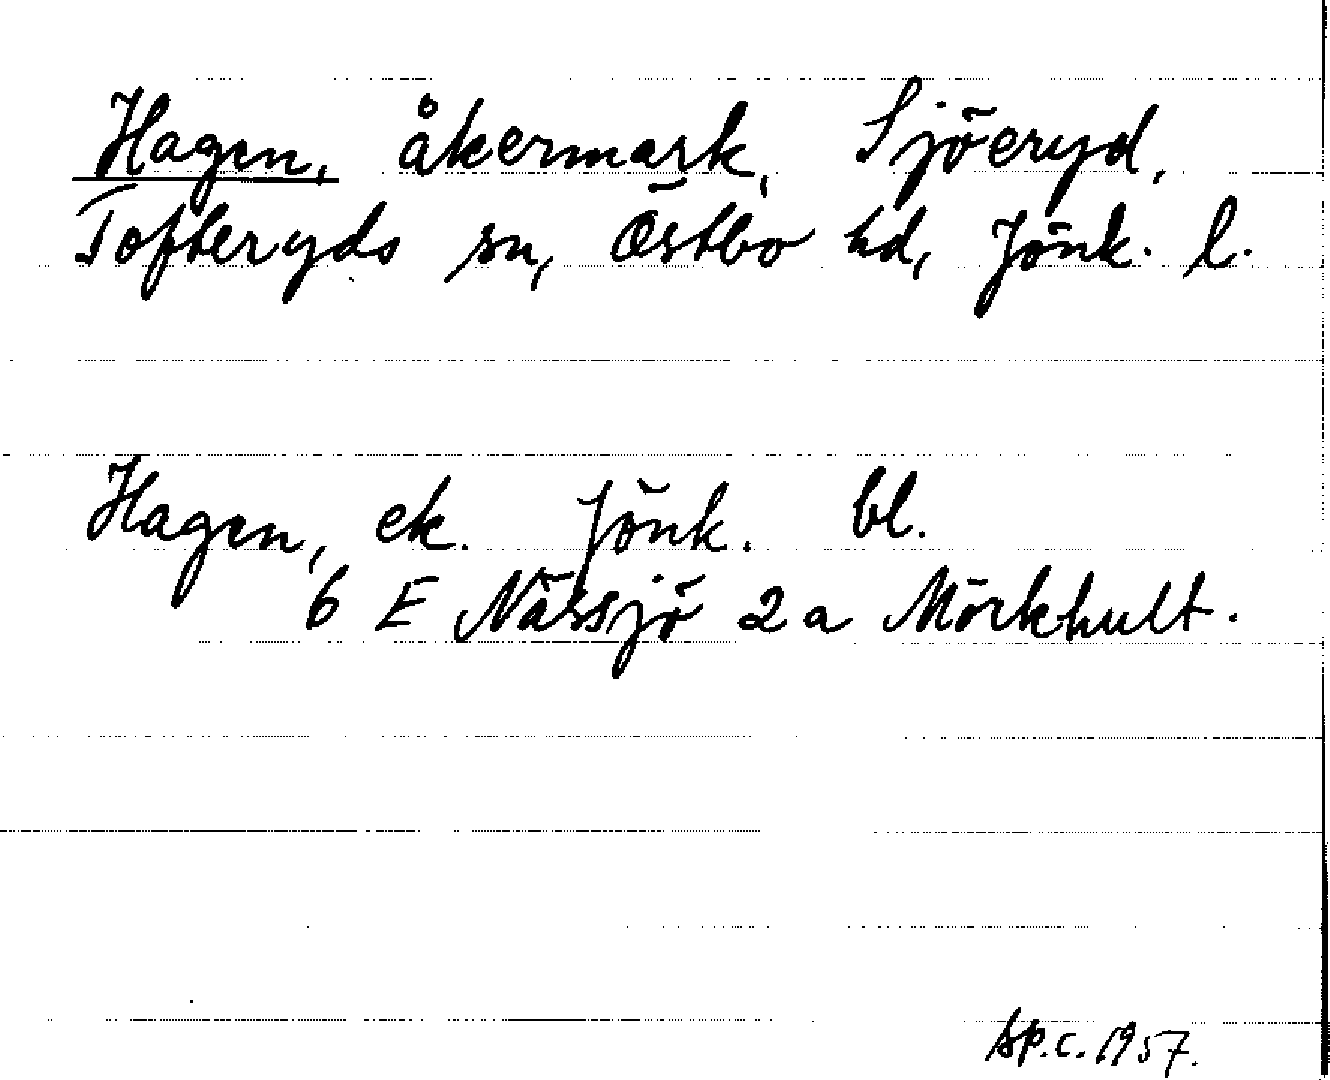 Hagen, åkermark, Sjöeryd,
Tofteryds sn, Östbo hd, Jönk. l.
Hagen, ek. Jönk. bl.
6 E Nässjö 2 a Mörkhult.
Sp.c. 1957.